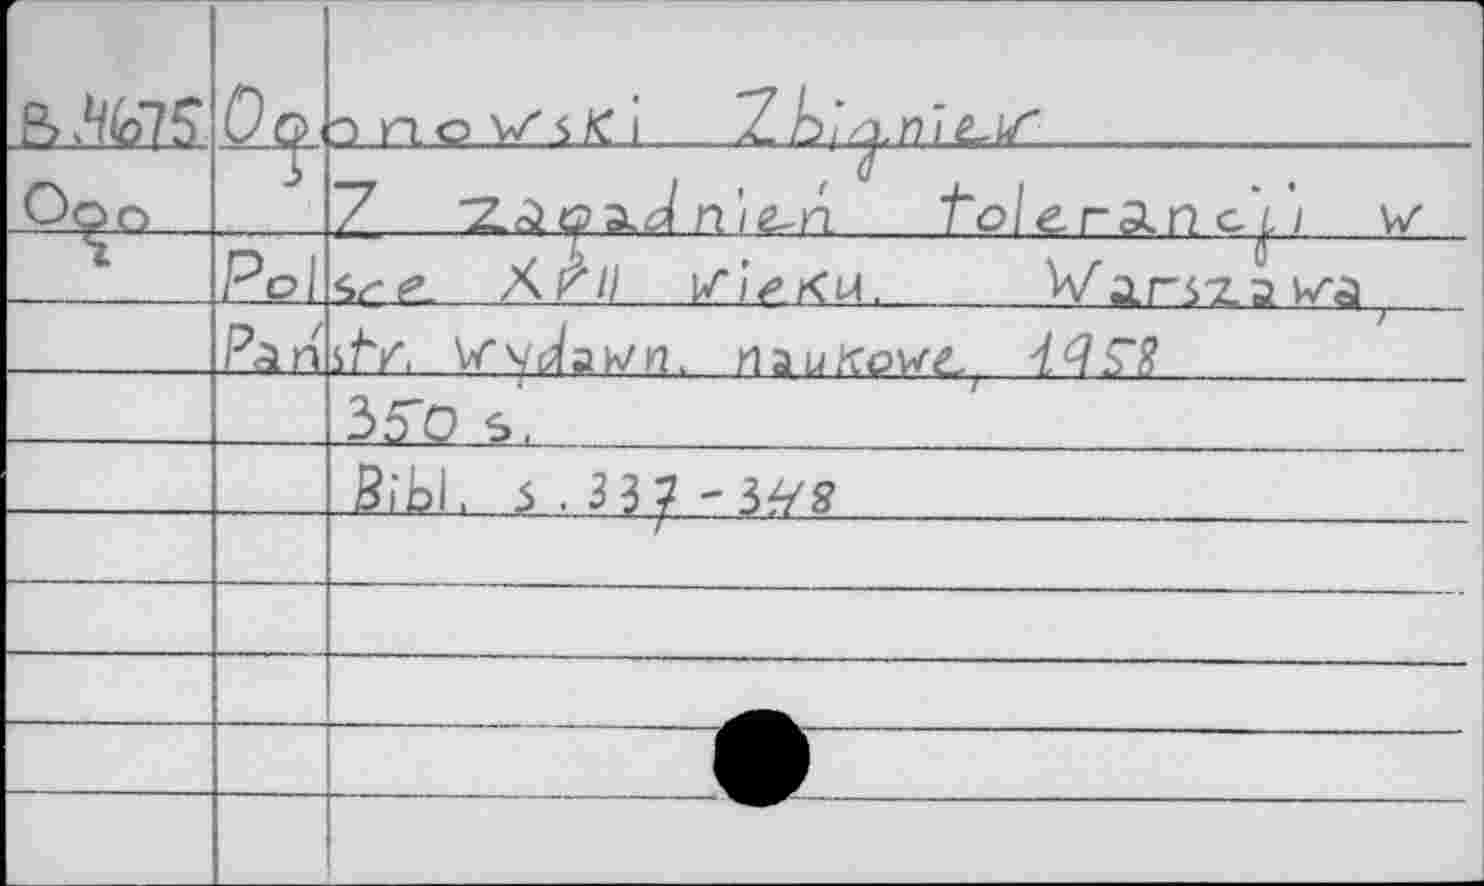 B.4675 Ogonowski Zbigniew
Ogo Z zagadnień tolerancji w
Polsce XVII wieku. Warszawa,
Państw. wydawn. naukowe, 1958
350 s.
Bibl. s. 337-348